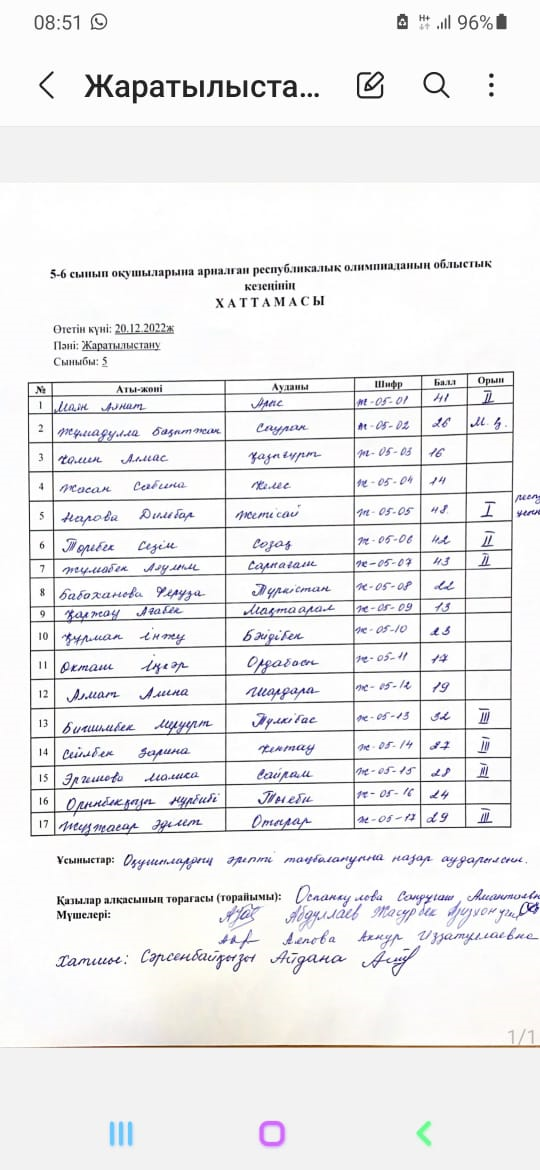 08:51 H+ 96%
Жаратылыста...
5-6 сынып оқушыларына арналған республикалық олимпиаданың облыстық
кезеңінің
ХАТТАМАСЫ
Өтетін күні: 20.12.2022ж
Пәні: Жаратылыстану
Сыныбы: 5
№ Аты-жөні Ауданы Шифр Балл Орын
1 Маян Алнат Арыс ж-05-01 41 II
2 Жумадулла Бақытжан Сауран ж-05-02 26 М. г.
3 Алмас Қазығұрт ж-05-03 16
4 Жасан Сабина Келес ж-05-04 14
5 Нарова Дилебар Жетісай ж-05-05 48 I
6 Төребек Сезім Созақ ж-05-06 42 II
7 Жумабек Аяулым Сарыағаш ж-05-07 43 II
8 Бабаханова Феруза Түркістан ж-05-08 22
9 Қаржау Ағабек Мақтаарал ж-05-09 13
10 Құрман Інжу Бәйдібек ж-05-10 23
11 Окташ Іңкәр Ордабасы ж-05-11 17
12 Алмат Алина Шардара ж-05-12 19
13 Бигишмбек Меруерт Түлкібас ж-05-13 32 III
14 Сейлбек Зарина Кентау ж-05-14 27 III
15 Эргешова Малика Сайрам ж-05-15 28 III
16 Орынбекқызы Нұрбибі Төлеби ж-05-16 24
17 Жүзжасар Әділет Отырар ж-05-17 29 III
Ұсыныстар: Оқушылардың әріпті таңбалануына назар аударылсын.
Қазылар алқасының торағасы (торайымы): Оспанкулова Сандуғаш Амантаевн
Мүшелері: Абдуллаев Жасурбек
Аяпова Акнур Иззатуллаевна
Хатшы: Сәрсенбайқызы Айдана
1/1